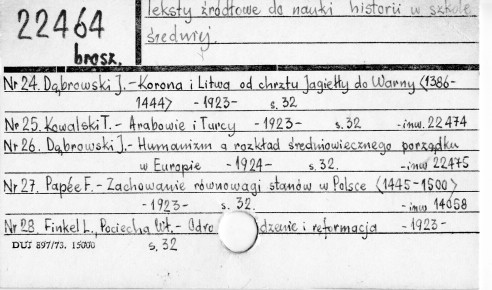 22464
brosz.
Teksty źródłowe do nauki historii w szkole
średniej.
Nr 24. Dąbrowski J. - Korona i Litwa od chrztu Jagiełły do Warny (1386-
1444) - 1923 - s. 32
Nr 25. Kowalski T. - Arabowie i Turcy - 1923 - s. 32 - inw. 22474
Nr 26. Dąbrowski J. - Humanizm a rozkład średniowiecznego porządku
w Europie - 1924 - s. 32. - inw 22475
Nr 27. Papée F. - Zachowanie równowagi stanów w Polsce (1445-1500)
- 1923 - s. 32. - inw 14058
Nr 28. Finkel L., Pociecha Wł. - Odro dzenie i reformacja - 1923 -
s. 32
DUJ 897/73. 15000